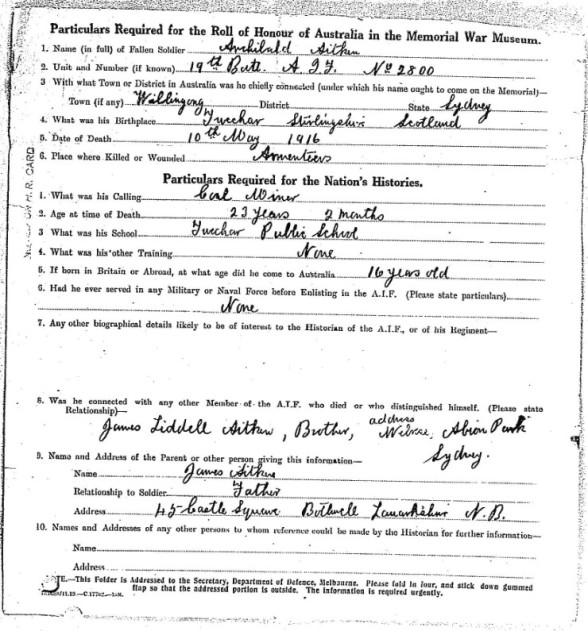 Particulars Required for the Roll of Honour of Australia in the Memorial War Museum.
1. Name (in full) of Fallen Soldier Archibald Aitken
2. Unit and Number (if known) 19th Batt. A.I.F. No 2800
3 With what Town or District in Australia was he chiefly connected (under which his name ought to come on the Memorial)—
Town (if any) Wollingong District State Sydney
4. What was his Birthplace Twechar Stirlingshire Scotland
5. Date of Death 10th May 1916
6. Place where Killed or Wounded Armentiers
Particulars Required for the Nation's Histories.
1. What was his Calling Coal Miner
2. Age at time of Death 23 years 2 months
3 What was his School Twechar Public School
4. What was his other Training None
5. If born in Britain or Abroad, at what age did he come to Australia 16 years old
6. Had he ever served in any Military or Naval Force before Enlisting in the A.I.F. (Please state particulars)
None
7. Any other biographical details likely to be of interest to the Historian of the A.I.F., or of his Regiment—
8. Was he connected with any other Member of the A.I.F. who died or who distinguished himself. (Please state
Relationship)—
James Liddell Aitken, Brother, address Albion Park
Sydney.
9. Name and Address of the Parent or other person giving this information—
Name James Aitken
Relationship to Soldier Father
Address 45 Castle Square Bothwell Lanarkshire N.B.
10. Names and Addresses of any other persons to whom reference could be made by the Historian for further information—
Name
Address
—This Folder is Addressed to the Secretary, Department of Defence, Melbourne. Please fold in four, and stick down gummed
flap so that the addressed portion is outside. The information is required urgently.